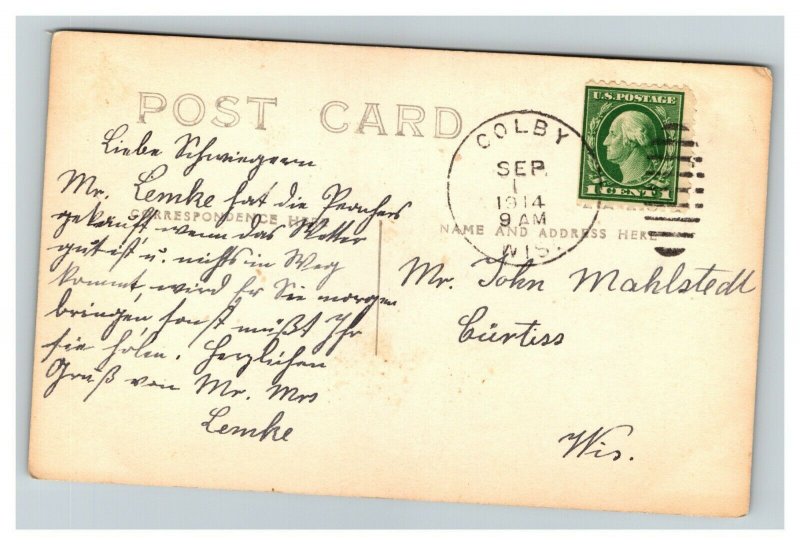 POST CARD
Liebe Schwiegern
Mr. Lemke hat die Peaches
gekauft wenn das Wetter
CORRESPONDENCE HERE
gut ist u. nichts in Weg
kommt, wird Er Sie morgen
bringen, sonst müßt Ihr
sie holen. Herzlichen
Gruß von Mr. Mrs
Lemke
COLBY
SEP
1
1914
9 AM
WIS.
U.S. POSTAGE
1 CENT 1
NAME AND ADDRESS HERE
Mr. John Mahlstedt
Curtiss
Wis.